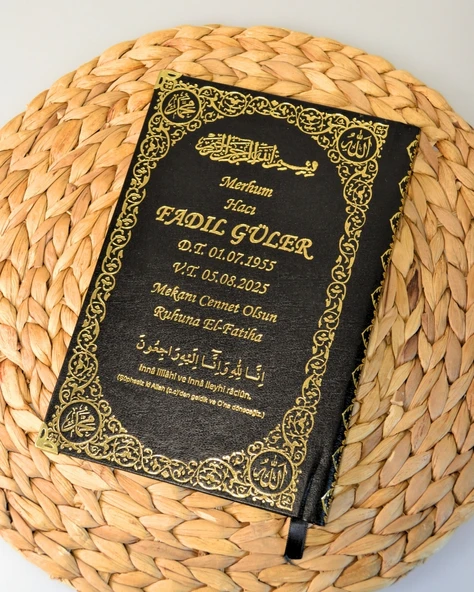 محمد
الله
بسم الله الرحمن الرحيم
Merhum
Hacı
FADIL GÜLER
D.T. 01.07.1955
V.T. 05.08.2025
Mekanı Cennet Olsun
Ruhuna El-Fatiha
اِنَّا لِلّٰهِ وَاِنَّٓا اِلَيْهِ رَاجِعُونَ
İnnâ lillâhi ve innâ ileyhi râciûn.
(Şüphesiz ki Allah (c.c)'dan geldik ve O'na döneceğiz.)
محمد
الله